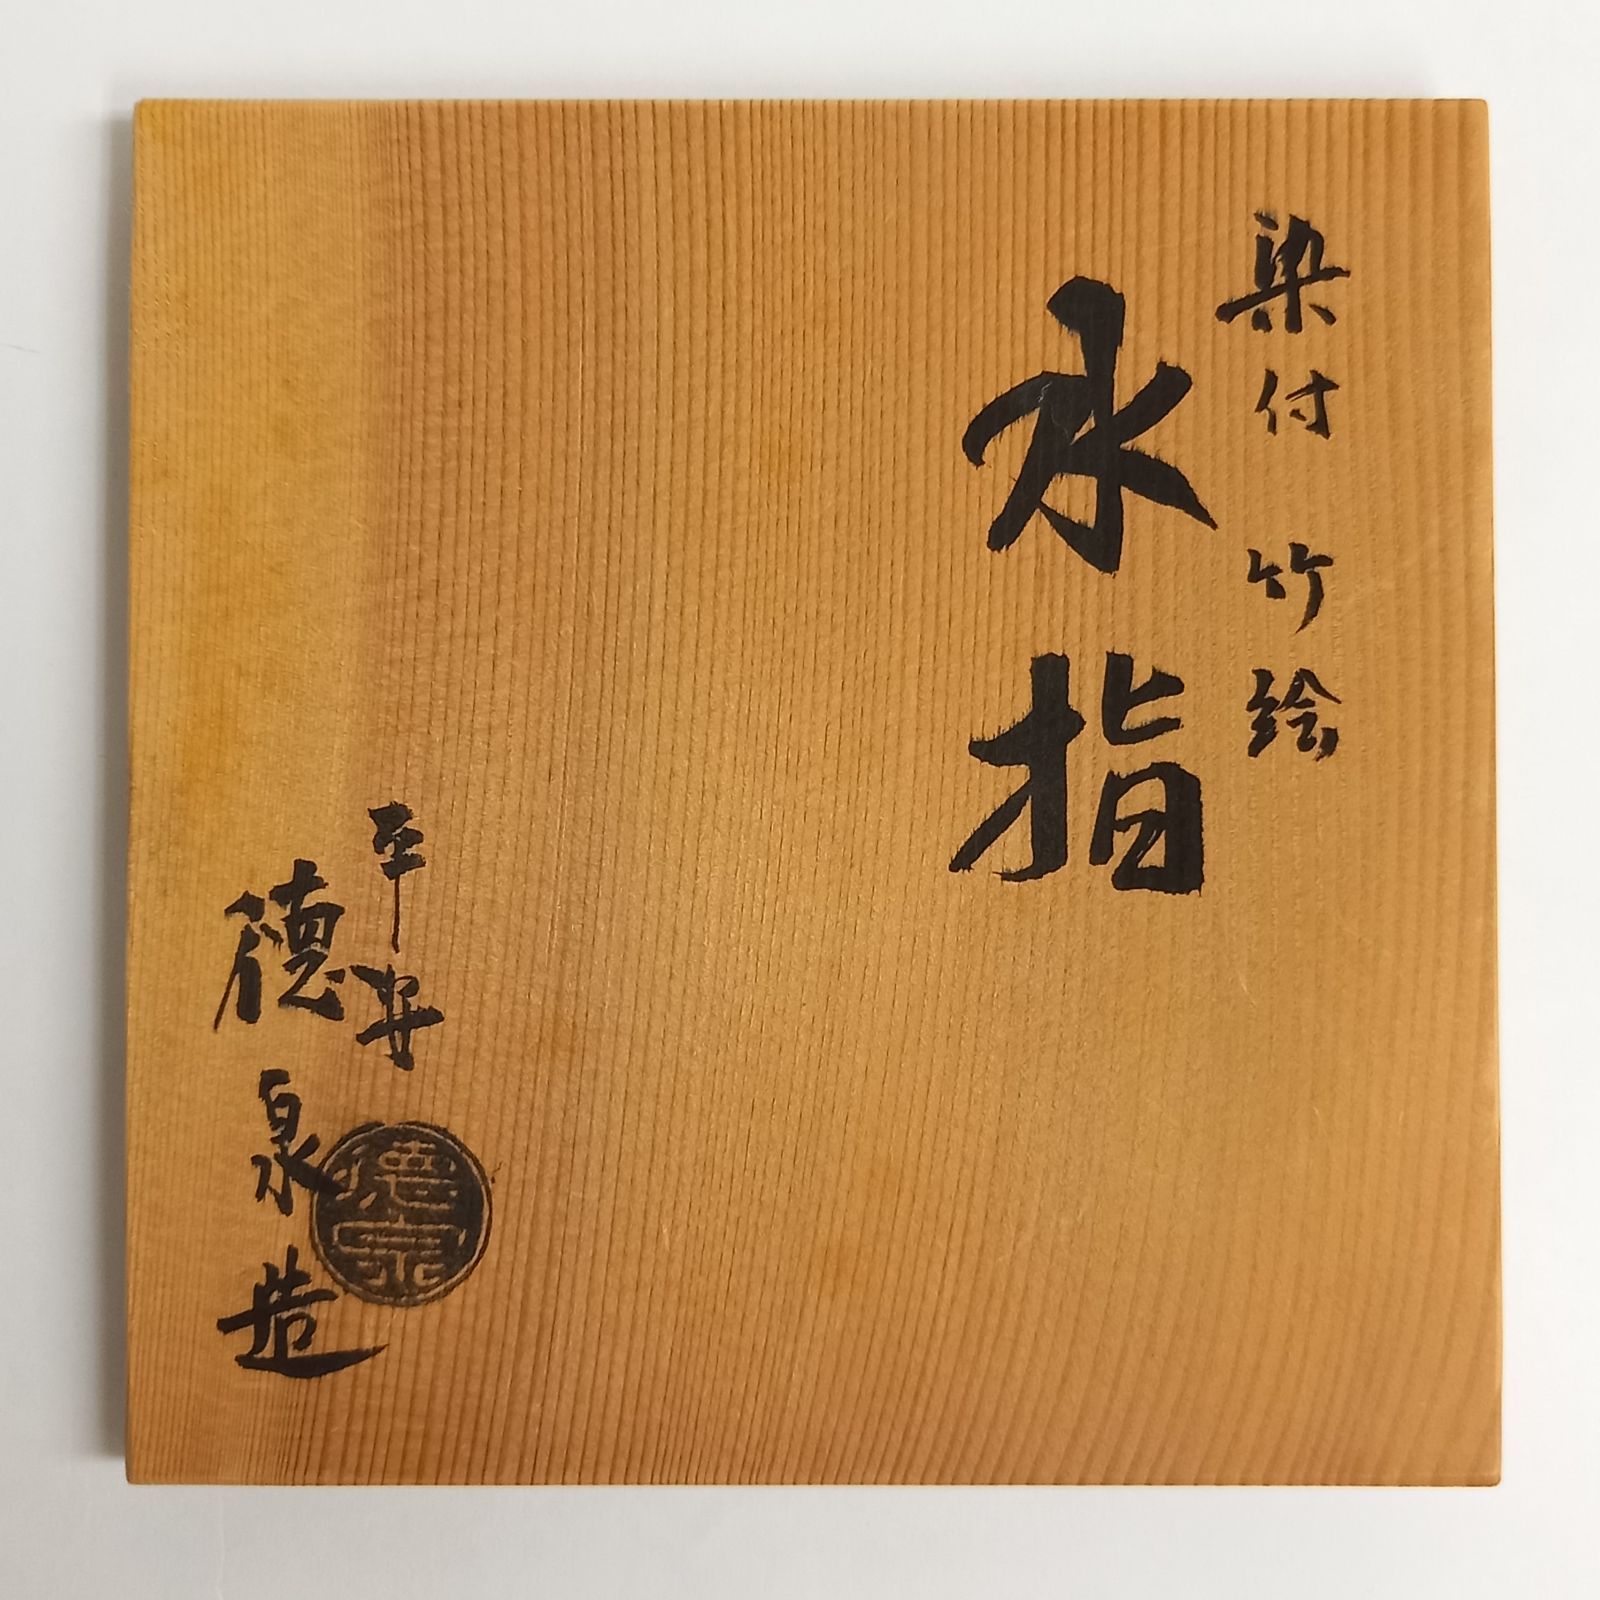 染付 竹絵
水指
平安
徳泉造
徳泉